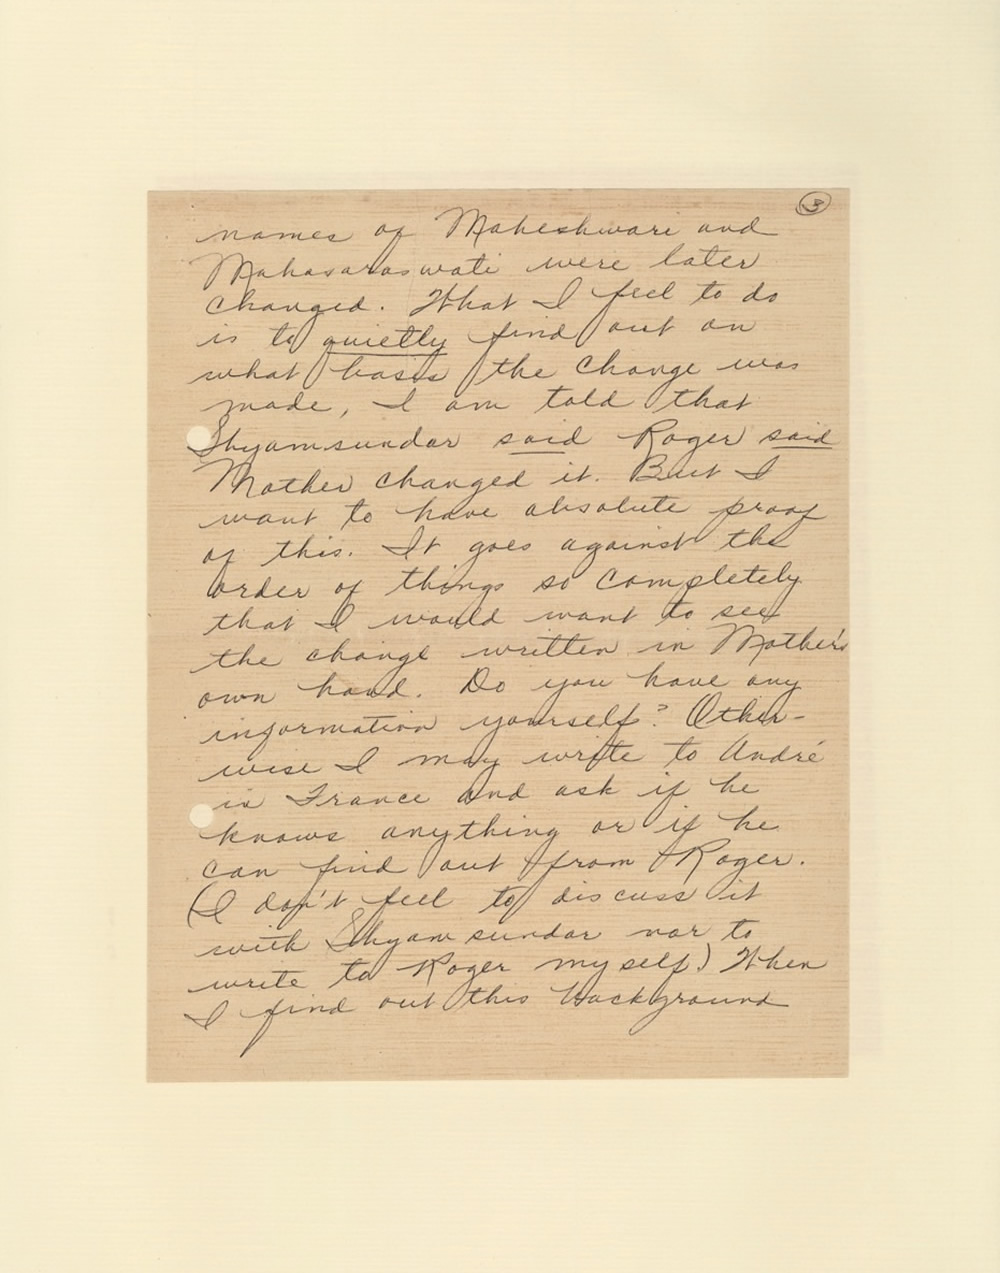 3
names of Maheshwari and
Mahasaraswati were later
changed. What I feel to do
is to quietly find out on
what basis the change was
made, I am told that
Shyamsundar said Roger said
Mother changed it. But I
want to have absolute proof
of this. It goes against the
order of things so completely
that I would want to see
the change written in Mother's
own hand. Do you have any
information yourself? Other-
wise I may write to André
in France and ask if he
knows anything or if he
can find out from Roger.
(I don't feel to discuss it
with Shyamsundar nor to
write to Roger myself.) When
I find out this background